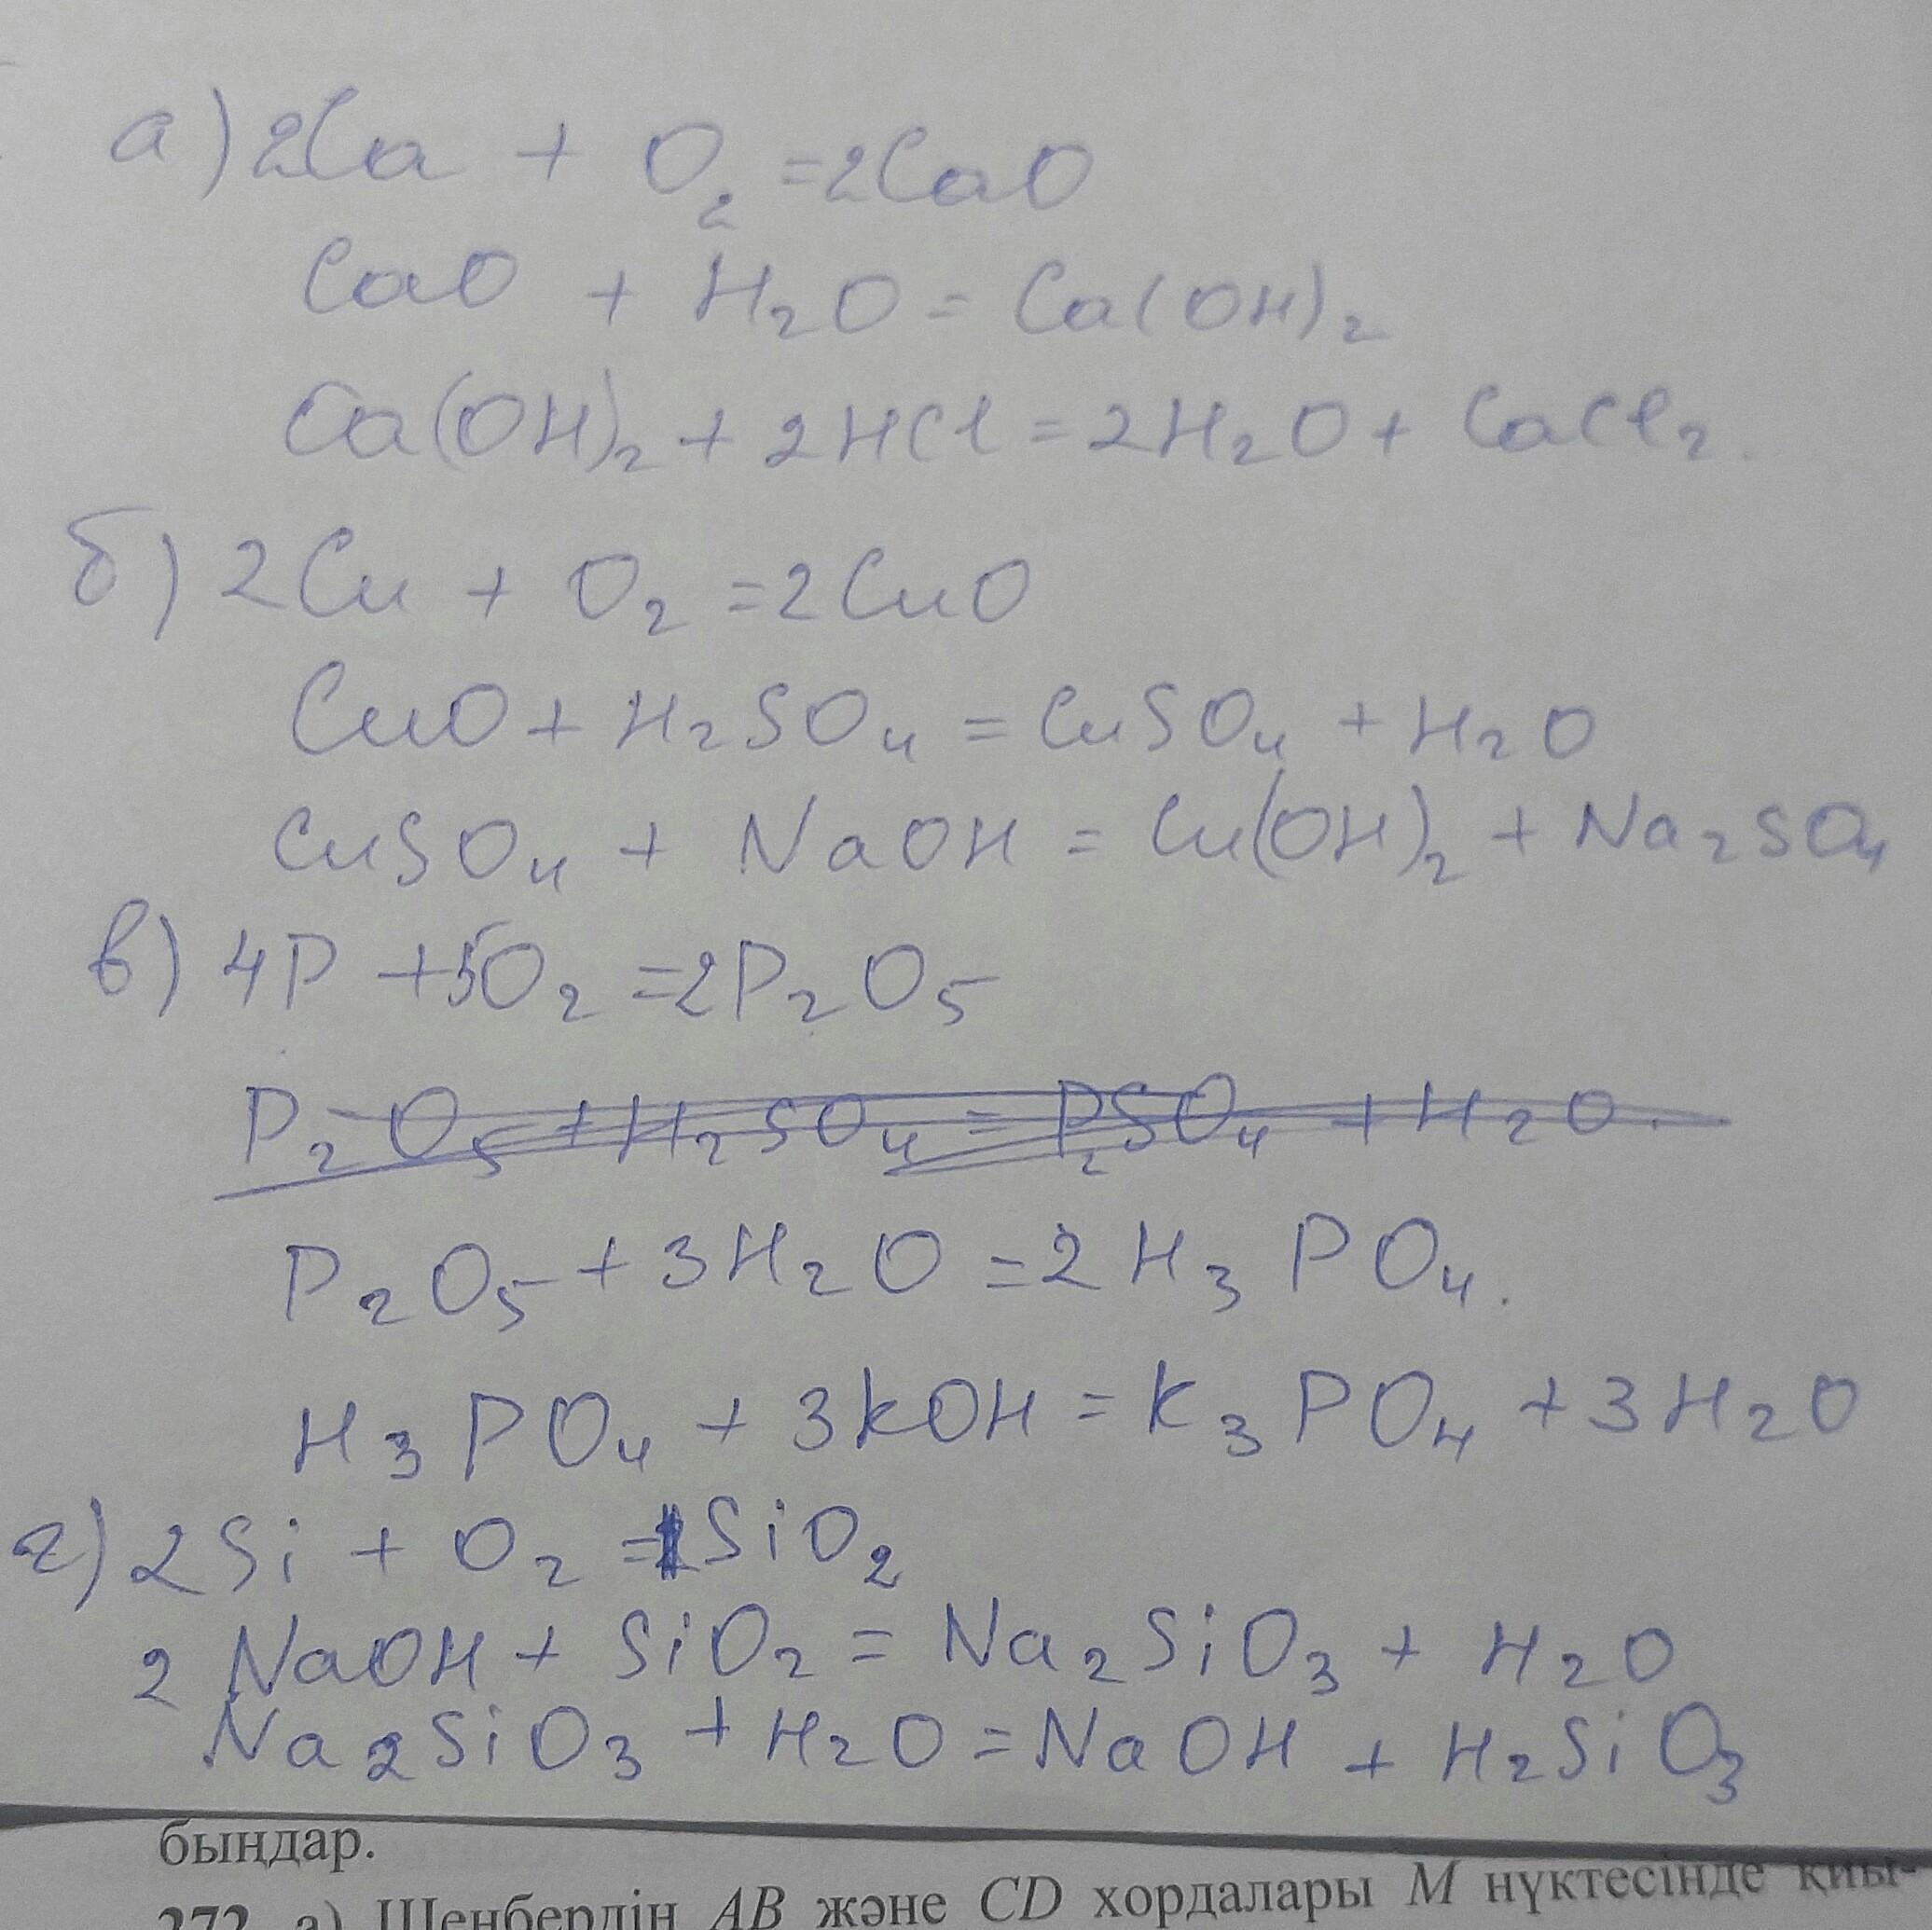 а) 2Ca + O₂ = 2CaO
CaO + H₂O = Ca(OH)₂
Ca(OH)₂ + 2HCl = 2H₂O + CaCl₂.
б) 2Cu + O₂ = 2CuO
CuO + H₂SO₄ = CuSO₄ + H₂O
CuSO₄ + NaOH = Cu(OH)₂ + Na₂SO₄
в) 4P + 5O₂ = 2P₂O₅
P₂O₅ + H₂SO₄ = P₂SO₄ + H₂O.
P₂O₅ + 3H₂O = 2H₃PO₄.
H₃PO₄ + 3KOH = K₃PO₄ + 3H₂O
г) 2Si + O₂ = SiO₂
2NaOH + SiO₂ = Na₂SiO₃ + H₂O
Na₂SiO₃ + H₂O = NaOH + H₂SiO₃
быңдар.
272. а) Шеңбердің AB және CD хордалары M нүктесінде қиы-